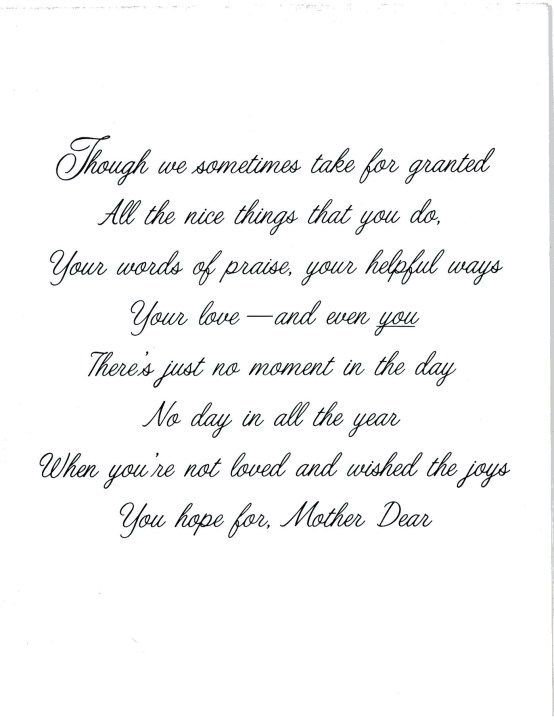 Though we sometimes take for granted
All the nice things that you do,
Your words of praise, your helpful ways
Your love —and even you
There's just no moment in the day
No day in all the year
When you're not loved and wished the joys
You hope for, Mother Dear